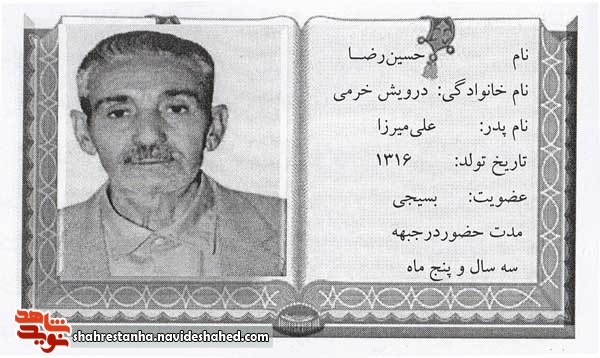 نام حسین‌رضا
نام خانوادگی: درویش خرمی
نام پدر: علی‌میرزا
تاریخ تولد: ۱۳۱۶
عضویت: بسیجی
مدت حضوردرجبهه
سه سال و پنج ماه
نوید شاهد
shahrestanha.navideshahed.com